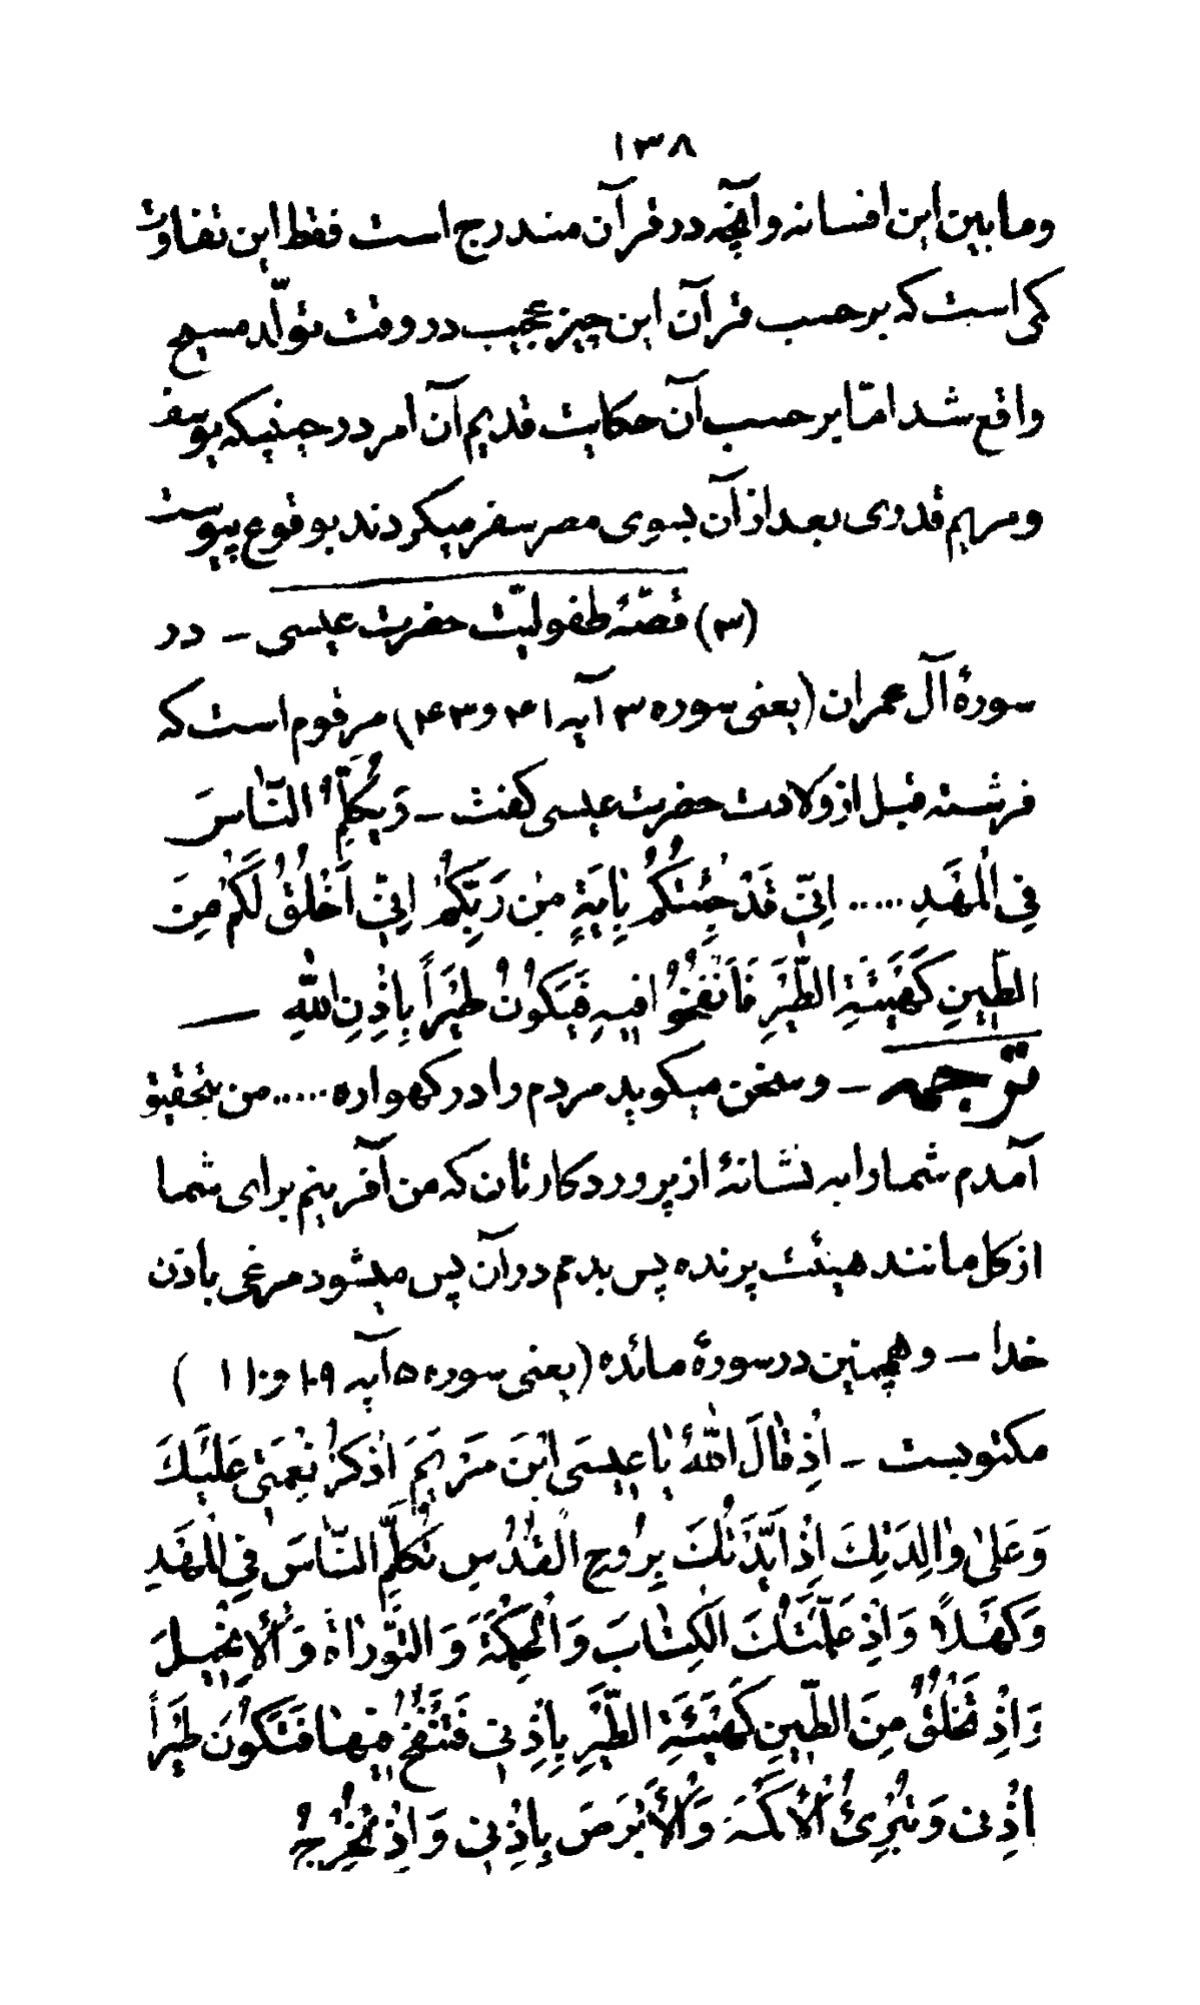 ۱۳۸
وما بین این افسانه وآنچه در قرآن مندرج است فقط این تفاوت
کمی است که برحسب قرآن این چیز عجیب در وقت تولّد مسیح
واقع شد امّا برحسب آن حکایت قدیم آن امر در حینیکه یوسف
ومریم قدری بعد از آن بسوی مصر سفر میکردند بوقوع پیوست
(۳) قصّۀ طفولیّت حضرت عیسی ــ در
سورۀ آل عمران (یعنی سوره ۳ آیه ۴۱ و ۴۳) مرقوم است که
فرشته قبل از ولادت حضرت عیسی گفت ــ وَیُکَلِّمُ النّٰاسَ
فِی الْمَهْدِ ..... اِنّی قَدْ جِئْتُکُمْ بِاٰیَةٍ مِنْ رَبِّکُمْ اِنّی اَخْلُقُ لَکُمْ مِنَ
الطّینِ کَهَیْئَةِ الطَّیْرِ فَاَنْفُخُ فیهِ فَیَکُونُ طَیْراً بِاِذْنِ اللّٰهِ ــ
ترجمه ــ و سخن میگوید مردم را در گهواره ..... من بتحقیق
آمدم شما را به نشانۀ از پروردگارتان که من آفرینم برای شما
از گل مانند هیئت پرنده پس بدمم در آن پس میشود مرغی باذن
خدا ــ و همچنین در سورۀ مائده (یعنی سوره ۵ آیه ۱۰۹ و ۱۱۰)
مکتوبست ــ اِذْ قٰالَ اللّٰهُ یٰا عیسَی ابْنَ مَرْیَمَ اذْکُرْ نِعْمَتی عَلَیْکَ
وَ عَلیٰ وٰالِدَتِکَ اِذْ اَیَّدْتُکَ بِرُوحِ الْقُدُسِ تُکَلِّمُ النّٰاسَ فِی الْمَهْدِ
وَ کَهْلاً وَ اِذْ عَلَّمْتُکَ الْکِتٰابَ وَ الْحِکْمَةَ وَ التَّوْرٰاةَ وَ الْاِنْجیلَ
وَ اِذْ تَخْلُقُ مِنَ الطّینِ کَهَیْئَةِ الطَّیْرِ بِاِذْنی فَتَنْفُخُ فیهٰا فَتَکُونُ طَیْراً
بِاِذْنی وَ تُبْرِئُ الْاَکْمَهَ وَ الْاَبْرَصَ بِاِذْنی وَ اِذْ تُخْرِجُ